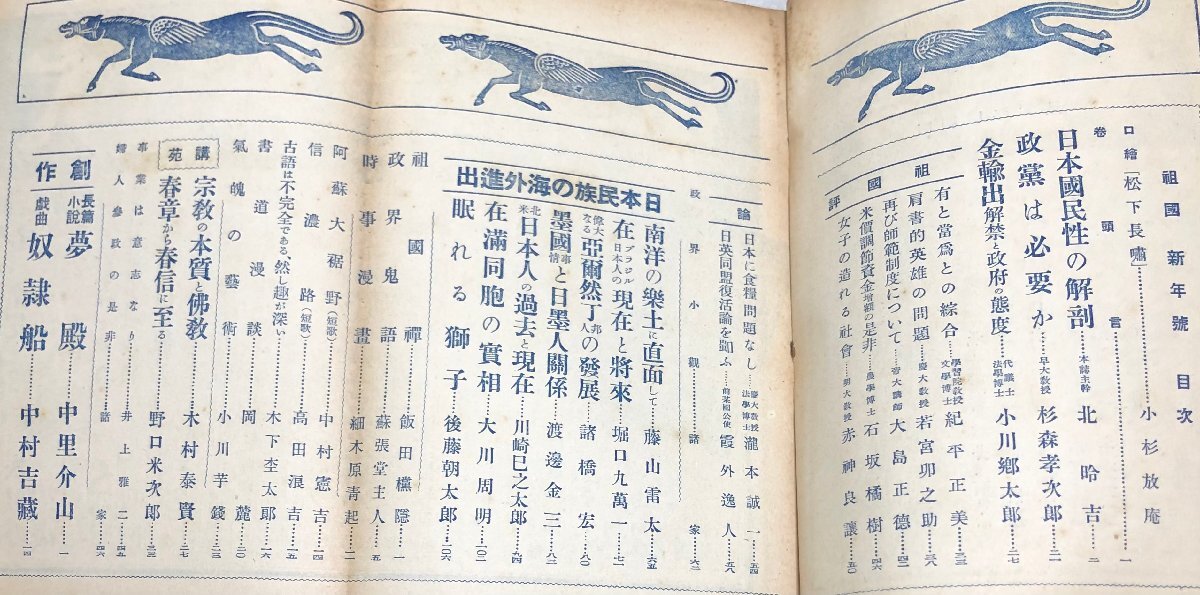 祖國新年號目次
口繪「松下長嘯」……小杉放庵……一
卷頭言
日本國民性の解剖……本誌主幹 北昤吉……二
政黨は必要か……早大敎授 杉森孝次郎……二一
金輸出解禁と政府の態度……代議士 法學博士 小川鄕太郎……二七
祖國評論
有と當爲との綜合……學習院敎授 文學博士 紀平正美……三三
肩書的英雄の問題……慶大敎授 若宮卯之助……三八
再び師範制度について……大島正德……四二
米價調節資金增額の是非……農學博士 石坂橘樹……四六
女子の造れる社會……明大敎授 赤神良讓……五〇
日本に食糧問題なし……慶大敎授 法學博士 瀧本誠一……五四
日英同盟復活論を嗤ふ……前某國公使 霞外逸人……五八
政界小觀……諸家……六二
日本民族の海外進出
南洋の樂土に直面して……藤山雷太……六五
在ブラジル日本人の現在と將來……堀口九萬一……七一
偉大なる亞爾然丁邦人の發展……諸橋宏……八〇
墨國事情と日墨人關係……渡邊金三……八二
北米日本人の過去と現在……川崎巳之太郎……九四
在滿同胞の實相……大川周明……一〇二
眠れる獅子……後藤朝太郎……一〇六
祖國禪……飯田欓隱……一
政界鬼語……蘇張堂主人……五
時事漫畫……細木原靑起……一一
阿蘇大裾野(短歌)……中村憲吉……一四
信濃路(短歌)……高田浪吉……一五
古語は不完全である、然し趣が深い……木下杢太郎……一六
書道漫談……岡麓……二〇
氣魄の藝術……小川芋錢……二三
講苑
宗敎の本質と佛敎……木村泰賢……二七
春章から春信に至る……野口米次郎……三三
事業は意志なり……井上雅二……四五
婦人參政の是非……諸家……四六
創作
長篇小說 夢殿……中里介山……一
戲曲 奴隸船……中村吉藏……一四